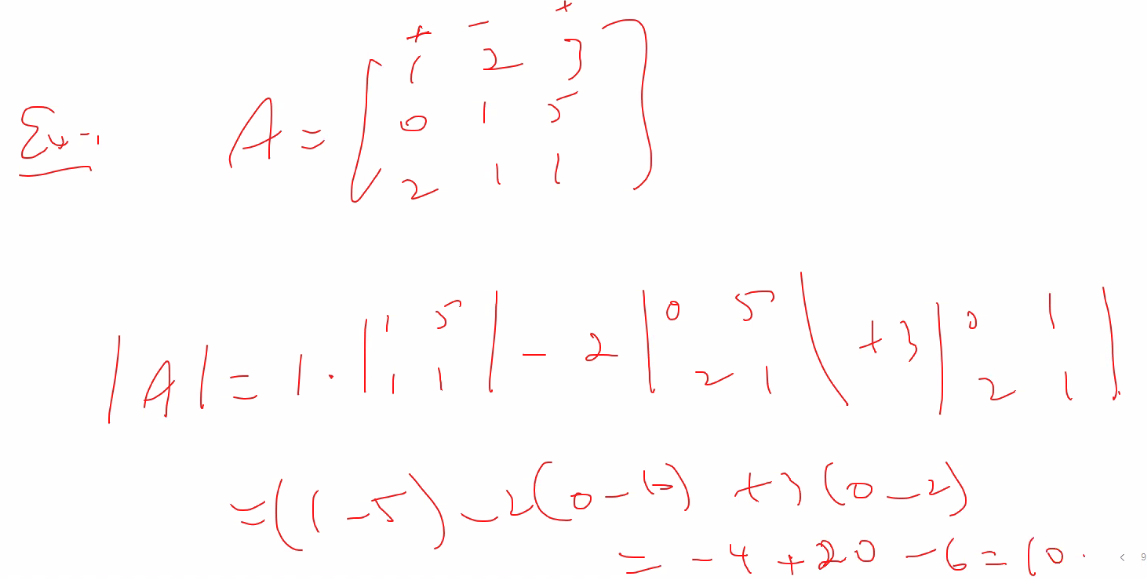 + - +
Ex-1 A = [ 1 2 3
0 1 5
2 1 1 ]
|A| = 1 · | 1 5 | - 2 | 0 5 | + 3 | 0 1 |
| 1 1 | | 2 1 | | 2 1 |
= (1 - 5) - 2(0 - 10) + 3(0 - 2)
= -4 + 20 - 6 = 10.
< 9